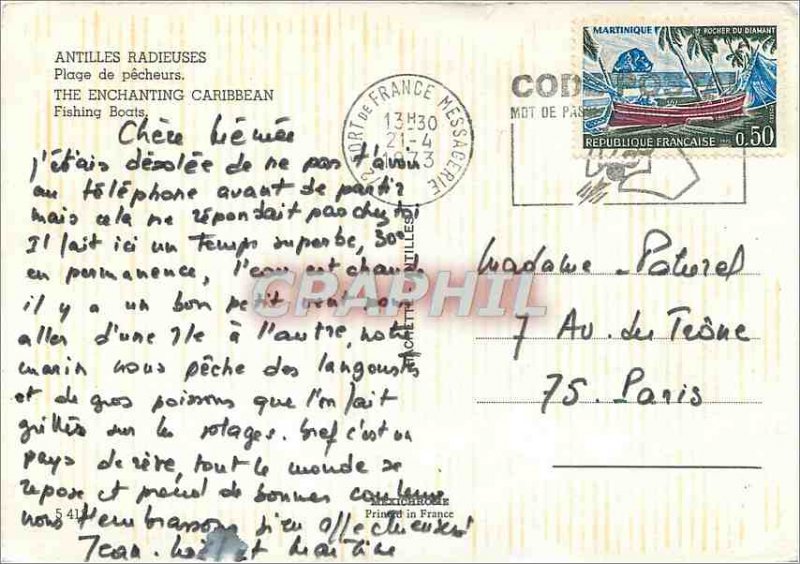 ANTILLES RADIEUSES
Plage de pêcheurs.
THE ENCHANTING CARIBBEAN
Fishing Boats.
Chère Mémée
J'étais désolée de ne pas t'avoir
au téléphone avant de partir
mais cela ne répondait pas chez toi
Il fait ici un temps superbe, 30°
en permanence, l'eau est chaude
il y a un bon petit vent pour
aller d'une île à l'autre, notre
marin nous pêche des langoustes
et de gros poissons que l'on fait
grillés sur les plages. Bref c'est un
pays de rêve, tout le monde se
repose et prend de bonnes couleurs
nous t'embrassons bien affectueusement
Jean et Martine
5 41
MEXICHROME
Printed in France
HACHETTE ANTILLES
CPAPHIL
FORT DE FRANCE MESSAGERIE
13H30
21-4
1973
CODE POSTAL
MOT DE PAS
MARTINIQUE
ROCHER DU DIAMANT
REPUBLIQUE FRANÇAISE
0.50
Madame
7 Av. du Trône
75. Paris